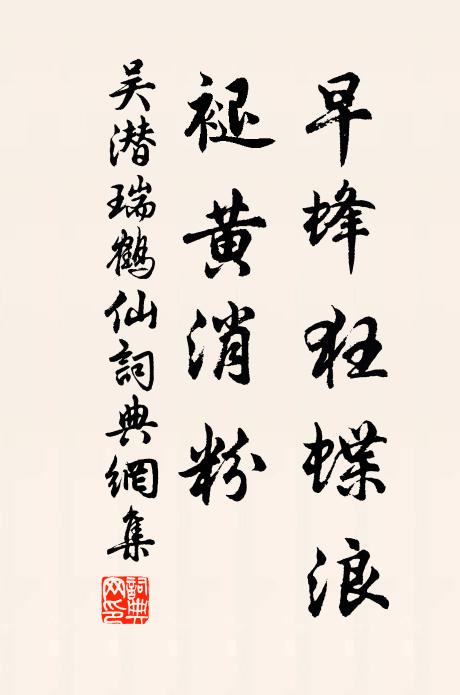 早蜂狂蝶浪
褪黄消粉
吴潜瑞鹤仙詞典網集
詞典网印